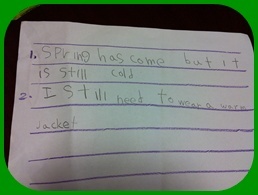 1. Spring has come but it
is still cold
2. I Still need to wear a warm
Jacket